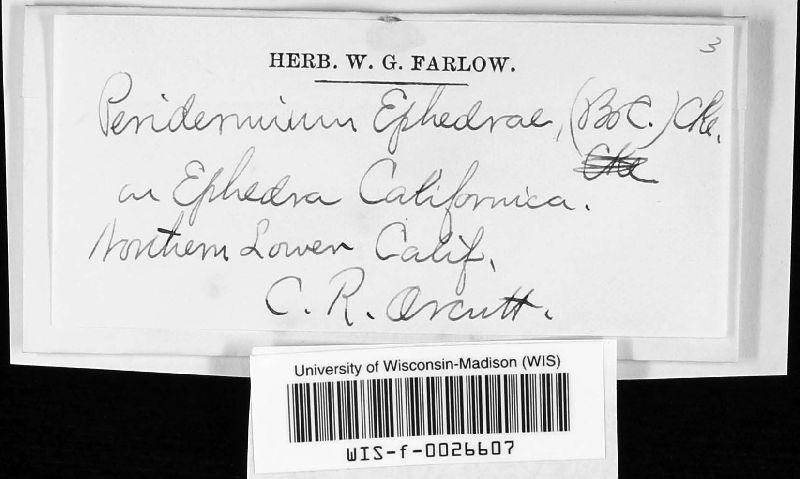 3
HERB. W. G. FARLOW.
Peridermium Ephedrae, (B & C.) Cke.
Cke
on Ephedra Californica.
Northern Lower Calif.
C. R. Orcutt.
University of Wisconsin-Madison (WIS)
WIS-f-0026607